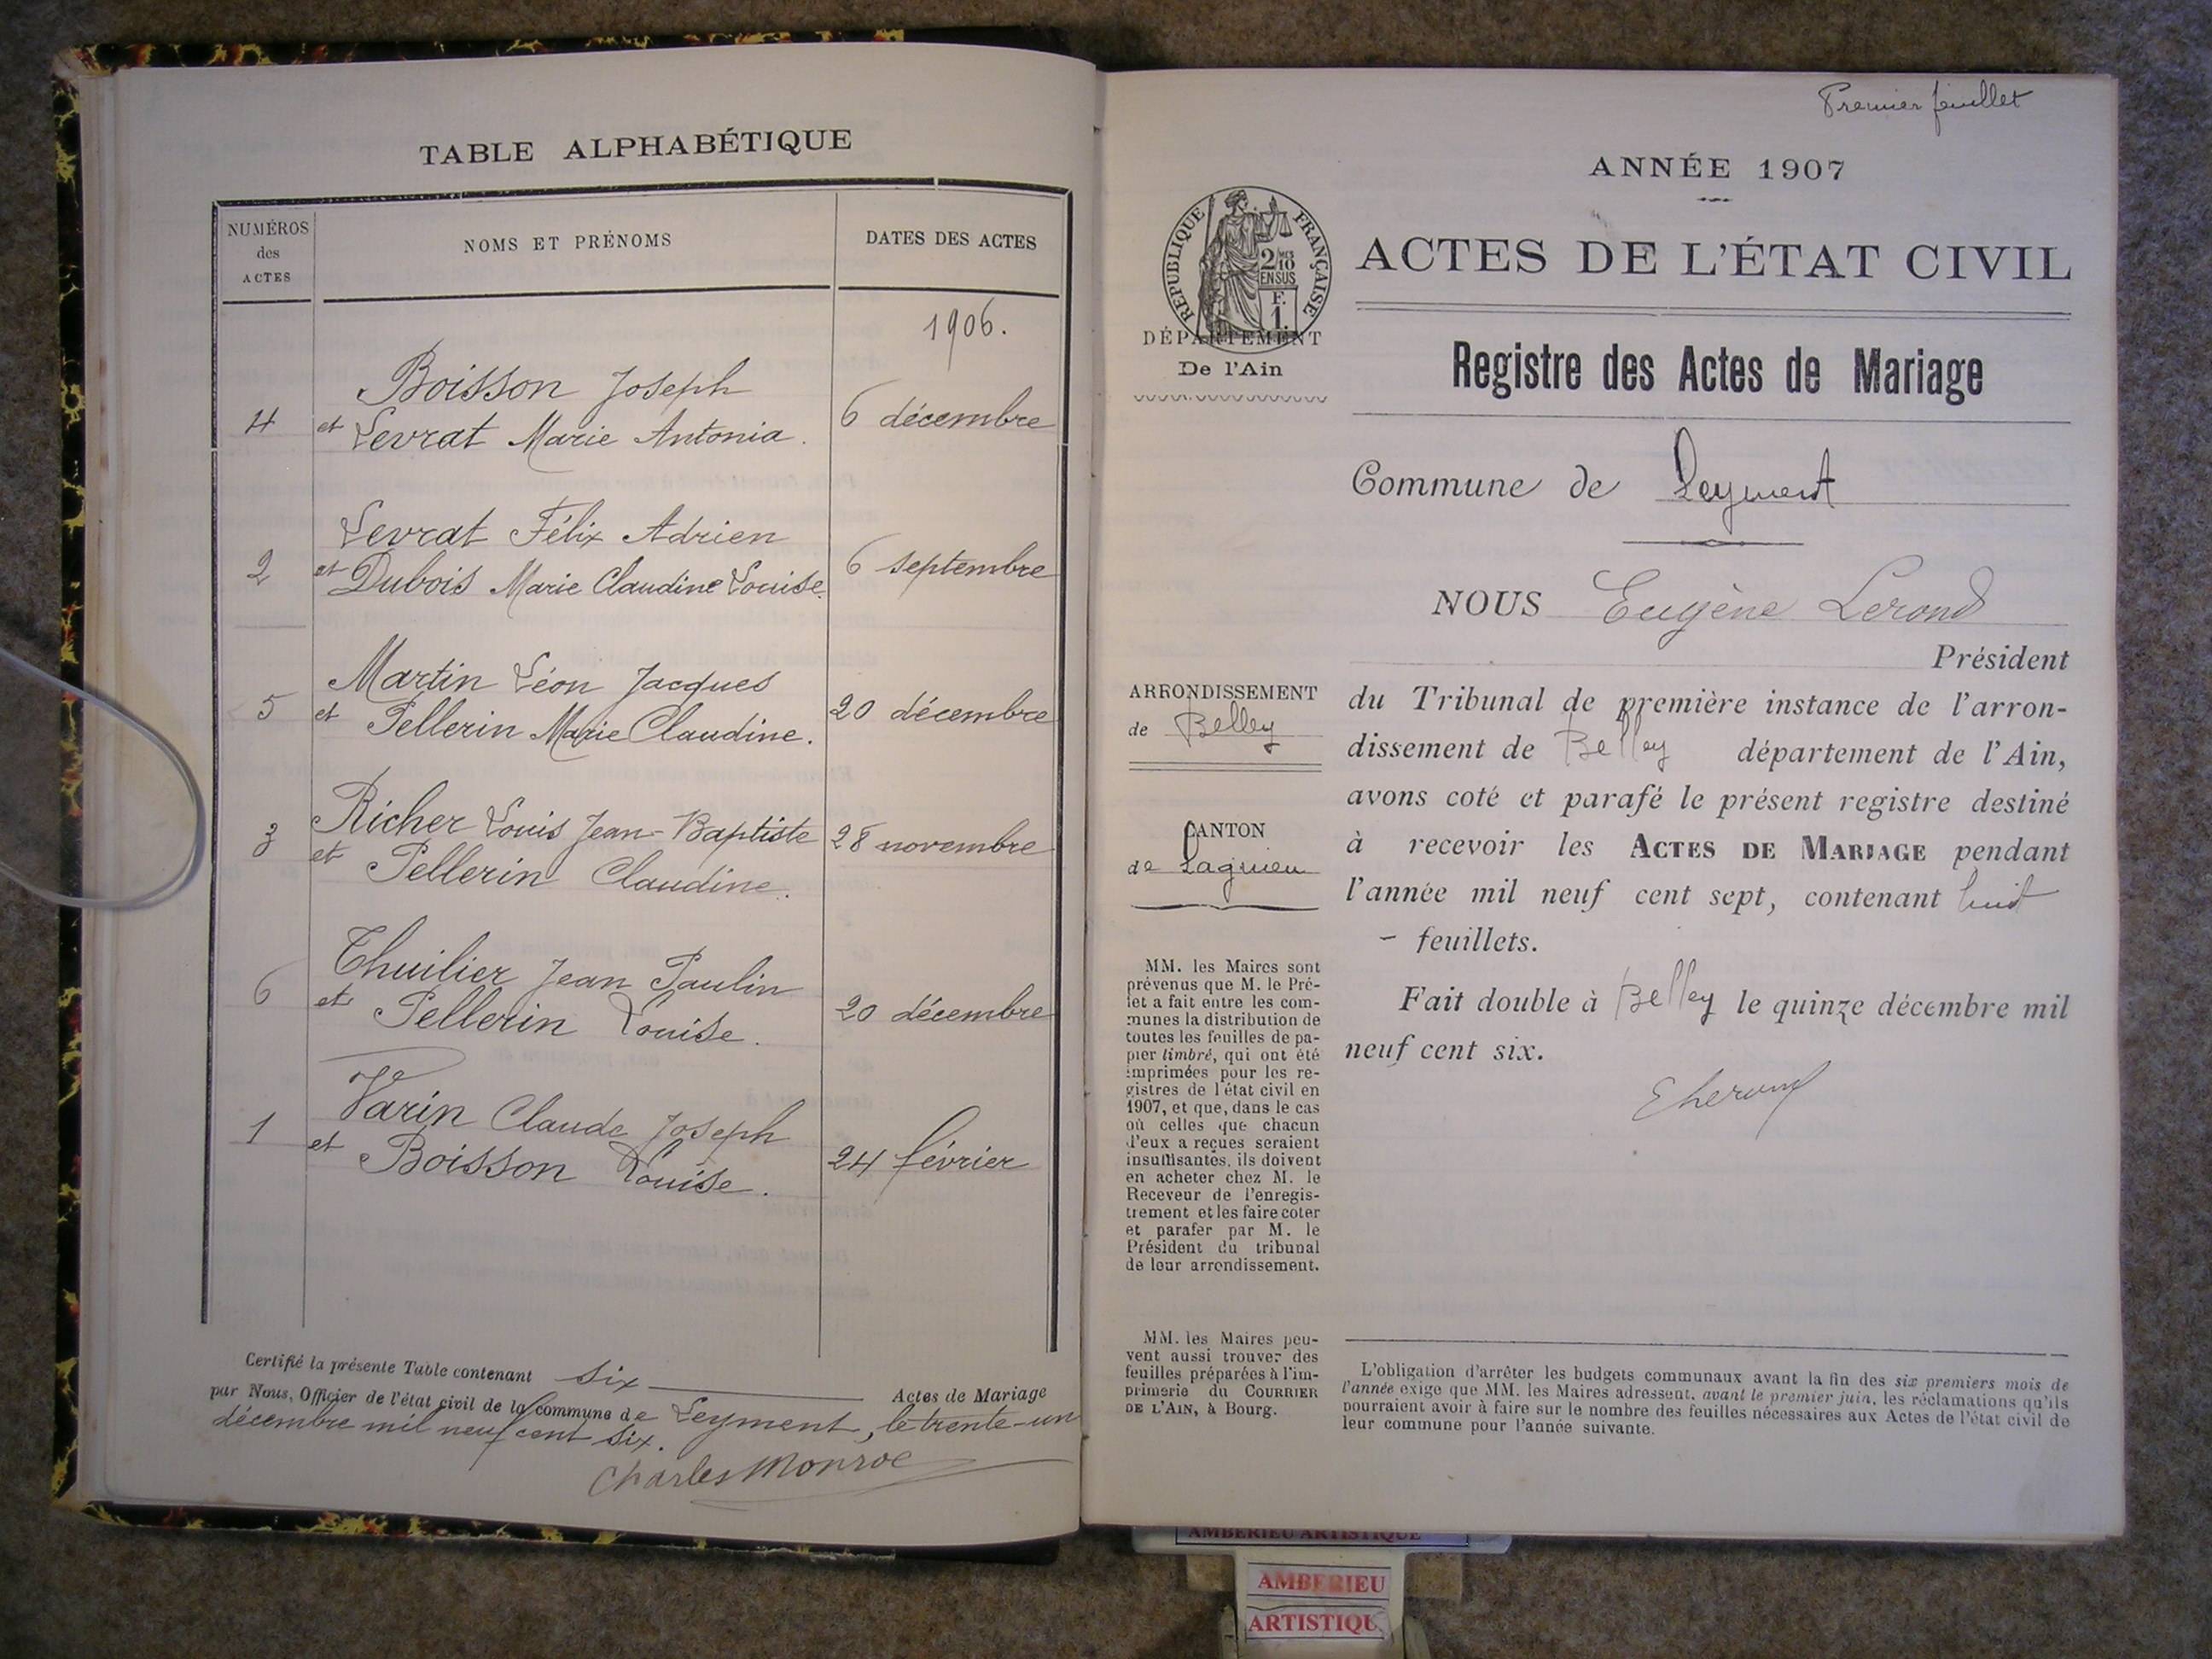 TABLE ALPHABÉTIQUE
NUMÉROS
des
ACTES
NOMS ET PRÉNOMS
DATES DES ACTES
1906.
Boisson Joseph
4 et Levrat Marie Antonia. 6 décembre
Levrat Félix Adrien
2 et Dubois Marie Claudine Louise. 6 septembre
Martin Léon Jacques
5 et Pellerin Marie Claudine. 20 décembre
Richer Louis Jean-Baptiste
3 et Pellerin Claudine. 28 novembre
Thuilier Jean Paulin
6 et Pellerin Louise. 20 décembre
Varin Claude Joseph
1 et Boisson Louise. 24 février
Certifié la présente Table contenant six Actes de Mariage
par Nous, Officier de l'état civil de la commune de Leyment, le trente-un
décembre mil neuf cent six.
Charles Monroe
Premier feuillet
ANNÉE 1907
RÉPUBLIQUE FRANÇAISE
2/10 MES
EN SUS
F.
1.
ACTES DE L'ÉTAT CIVIL
DÉPARTEMENT
De l'Ain
Registre des Actes de Mariage
Commune de Leyment
NOUS Eugène Lerond
Président
ARRONDISSEMENT
de Belley
CANTON
de Lagnieu
du Tribunal de première instance de l'arron-
dissement de Belley département de l'Ain,
avons coté et parafé le présent registre destiné
à recevoir les ACTES DE MARIAGE pendant
l'année mil neuf cent sept, contenant huit
- feuillets.
Fait double à Belley le quinze décembre mil
neuf cent six.
MM. les Maires sont
prévenus que M. le Pré-
fet a fait entre les com-
munes la distribution de
toutes les feuilles de pa-
pier timbré, qui ont été
imprimées pour les re-
gistres de l'état civil en
1907, et que, dans le cas
où celles que chacun
d'eux a reçues seraient
insuffisantes, ils doivent
en acheter chez M. le
Receveur de l'enregis-
trement et les faire coter
et parafer par M. le
Président du tribunal
de leur arrondissement.
MM. les Maires peu-
vent aussi trouver des
feuilles préparées à l'im-
primerie du COURRIER
DE L'AIN, à Bourg.
L'obligation d'arrêter les budgets communaux avant la fin des six premiers mois de
l'année exige que MM. les Maires adressent, avant le premier juin, les réclamations qu'ils
pourraient avoir à faire sur le nombre des feuilles nécessaires aux Actes de l'état civil de
leur commune pour l'année suivante.
AMBERIEU ARTISTIQUE
AMBERIEU
ARTISTIQU